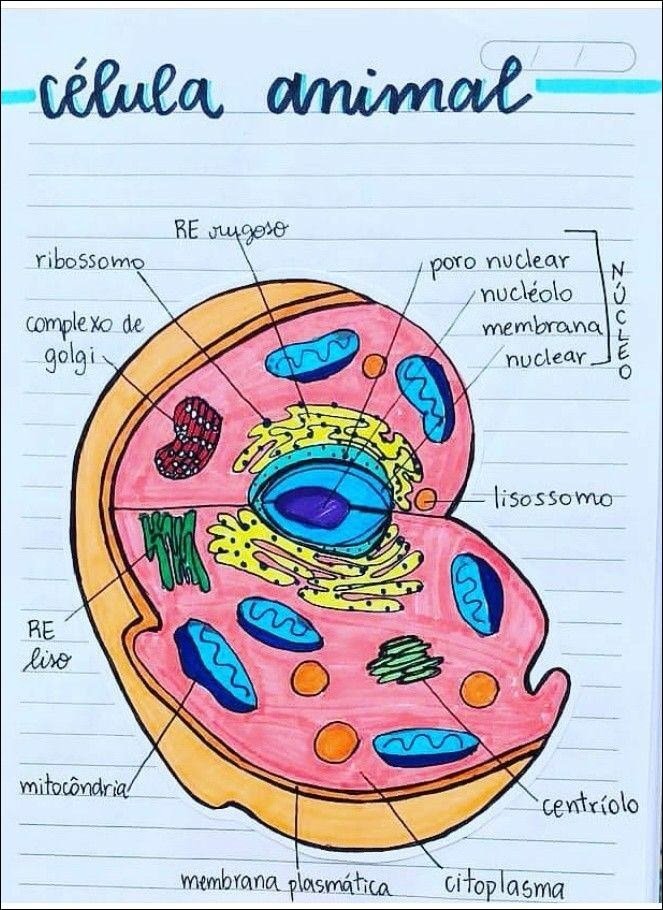 célula animal
RE rugoso
ribossomo
complexo de
golgi
poro nuclear
nucléolo
membrana
nuclear
NÚCLEO
lisossomo
RE
liso
mitocôndria
centríolo
membrana plasmática
citoplasma